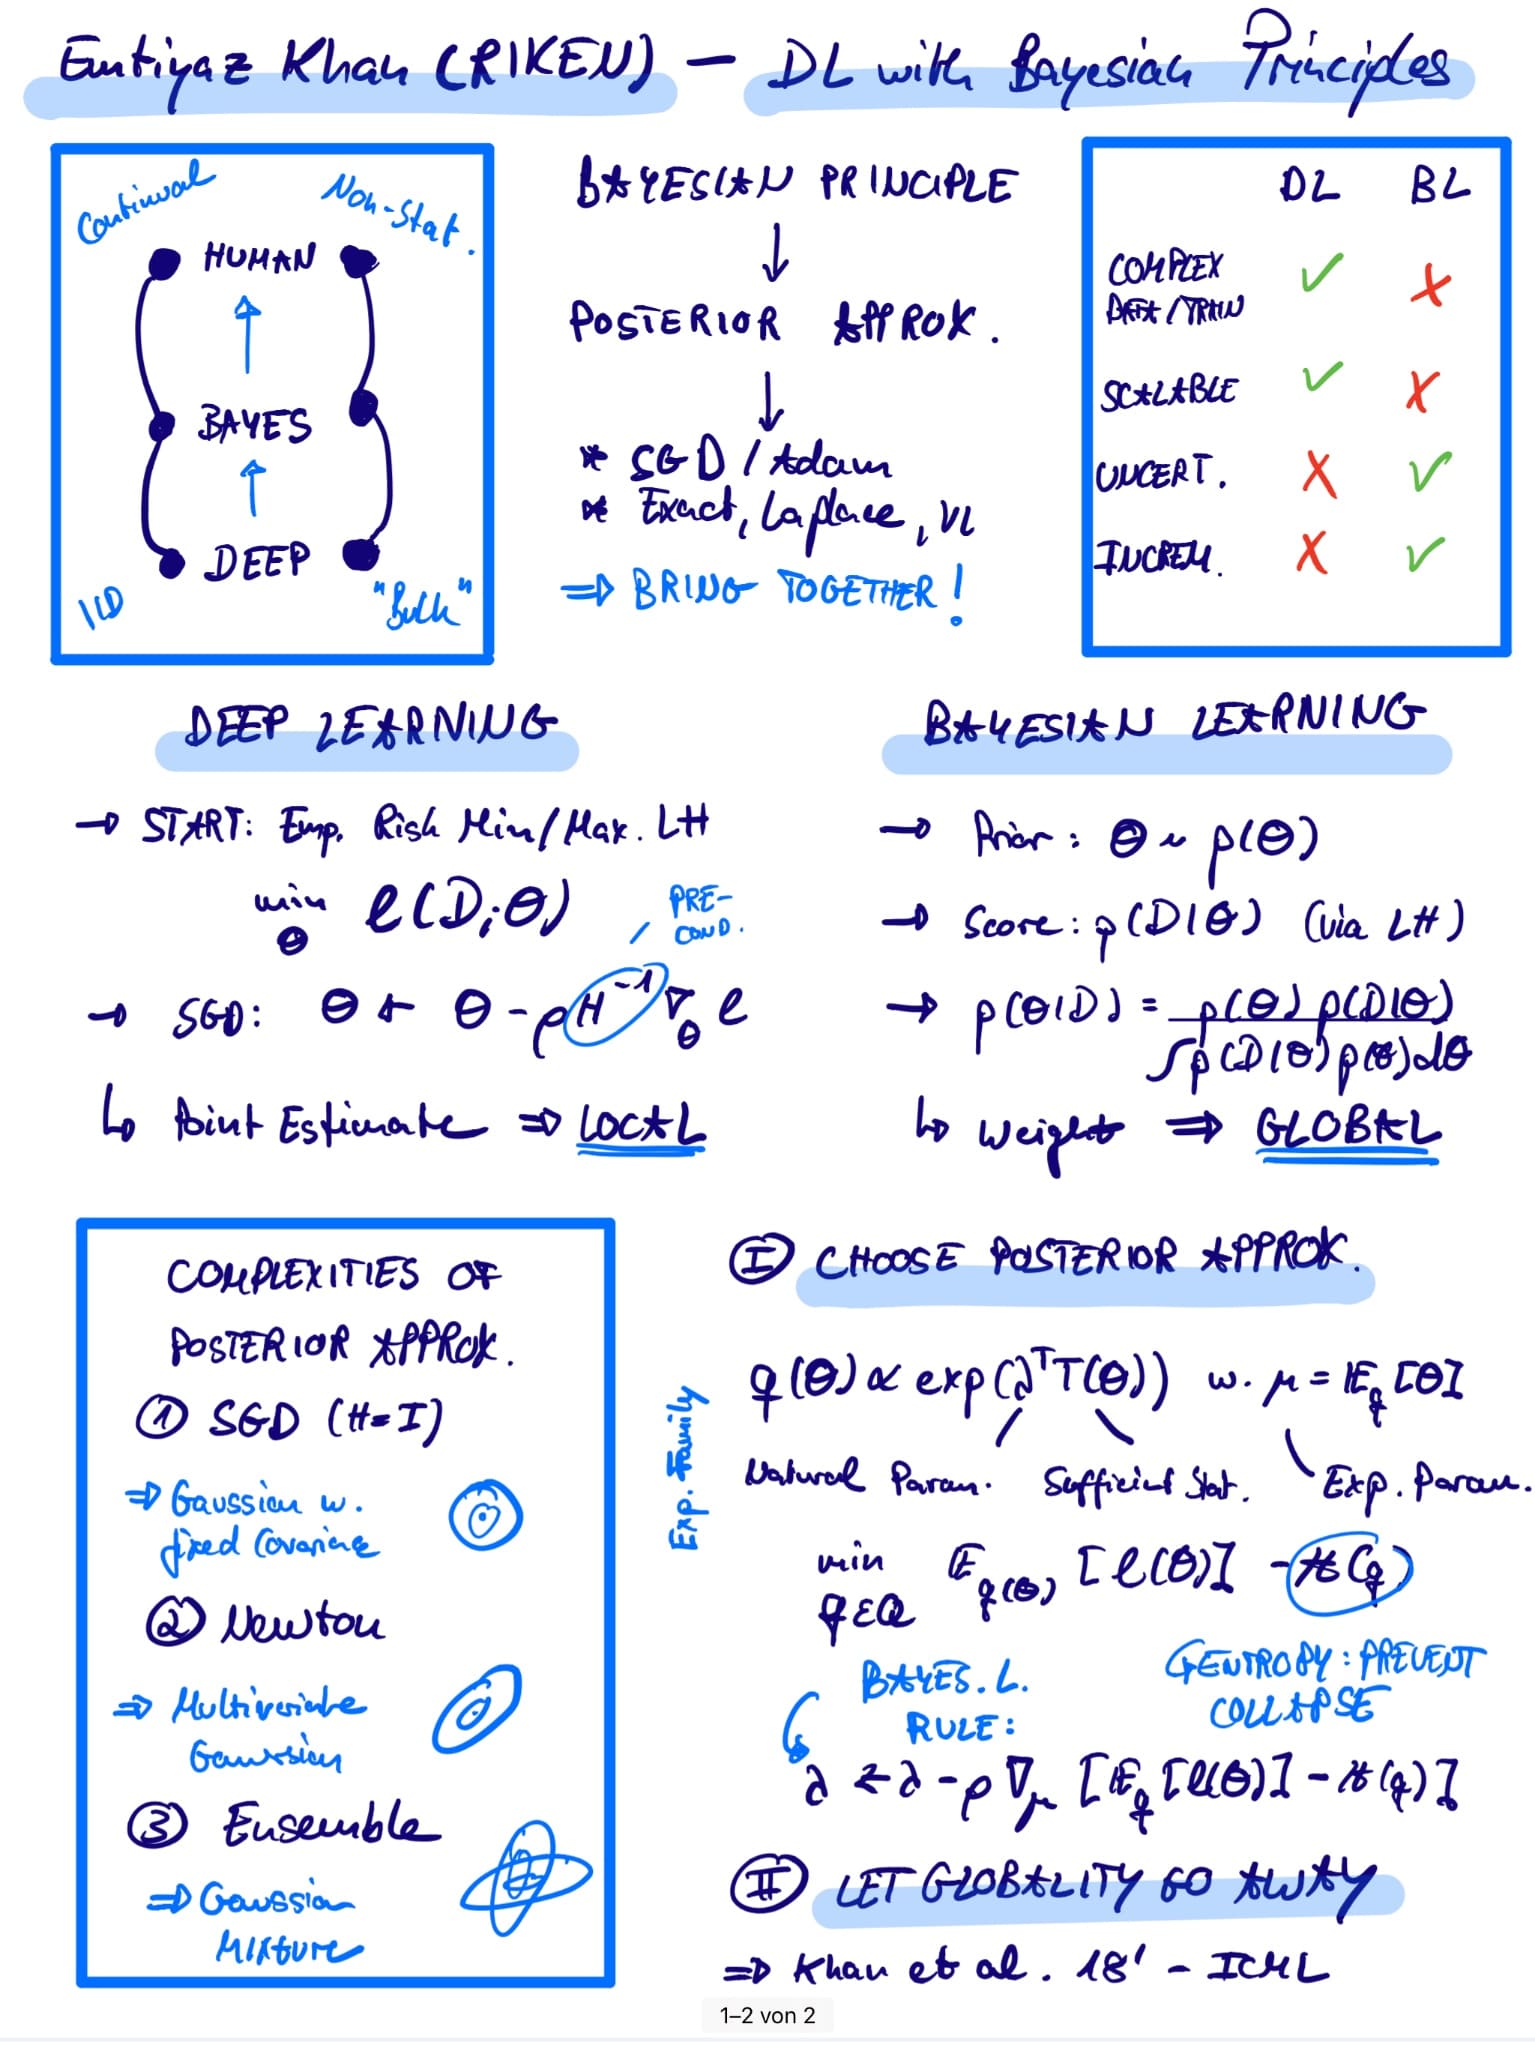 Emtiyaz Khan (RIKEN) — DL with Bayesian Principles
Continual
Non-Stat.
HUMAN
BAYES
DEEP
IID
"Bulk"
BAYESIAN PRINCIPLE
↓
POSTERIOR APPROX.
↓
* SGD / Adam
* Exact, Laplace, VI
⇒ BRING TOGETHER!
DL BL
COMPLEX
DATA/TRAIN ✓ ✗
SCALABLE ✓ ✗
UNCERT. ✗ ✓
INCREM. ✗ ✓
DEEP LEARNING
→ START: Emp. Risk Min/Max. LH
min ℓ(D;θ)
θ
PRE-
COND.
→ SGD: θ ← θ - ρ H⁻¹ ∇_θ ℓ
↳ Point Estimate ⇒ LOCAL
BAYESIAN LEARNING
→ Prior: θ ~ p(θ)
→ Score: p(D|θ) (via LH)
→ p(θ|D) = p(θ) p(D|θ)
∫p(D|θ)p(θ)dθ
↳ Weight ⇒ GLOBAL
COMPLEXITIES OF
POSTERIOR APPROX.
① SGD (H=I)
⇒ Gaussian w.
fixed Covariance
② Newton
⇒ Multivariate
Gaussian
③ Ensemble
⇒ Gaussian
MIXTURE
Ⓘ CHOOSE POSTERIOR APPROX.
Exp. Family
q(θ) ∝ exp(λᵀT(θ)) w. μ = 𝔼_q[θ]
Natural Param. Sufficient Stat. Exp. Param.
min 𝔼_q(θ) [ℓ(θ)] - ℋ(q)
q∈Q
BAYES. L.
RULE:
↳ENTROPY: PREVENT
COLLAPSE
λ ← λ - ρ ∇_μ [𝔼_q[ℓ(θ)] - ℋ(q)]
Ⅱ LET GLOBALITY GO AWAY
⇒ Khan et al. 18' - ICML
1–2 von 2